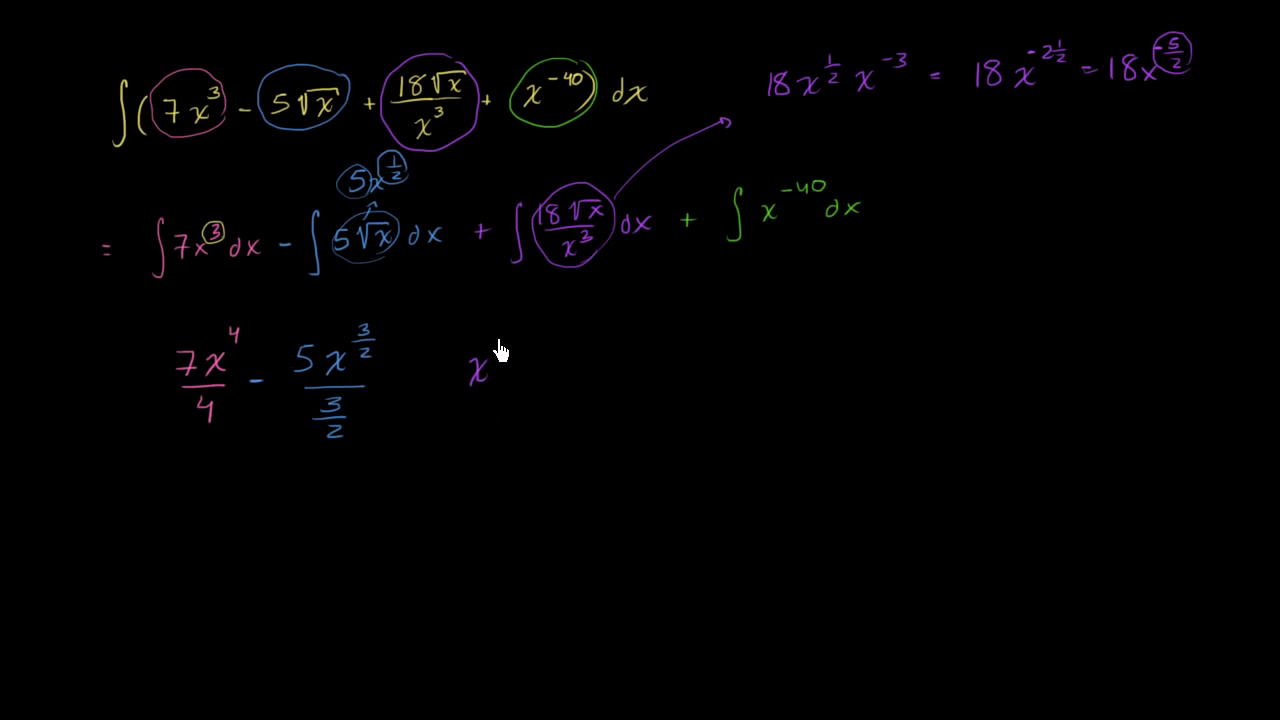 ∫(7x³ - 5√x + 18√x/x³ + x⁻⁴⁰) dx
18x^(1/2) x⁻³ = 18x^(-2 1/2) = 18x^(-5/2)
5x^(1/2)
= ∫7x³dx - ∫5√x dx + ∫18√x/x³ dx + ∫x⁻⁴⁰dx
7x⁴/4 - 5x^(3/2)/(3/2) x